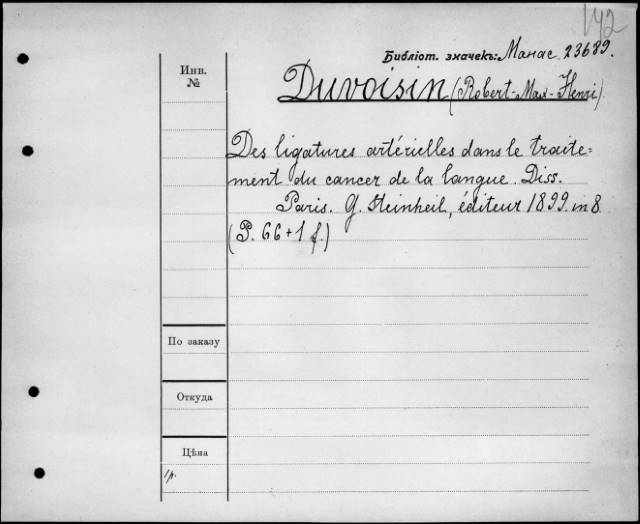 142
Библіот. значекъ: Манас. 23689.
Инв.
№
Duvoisin (Robert-Max-Henri).
Des ligatures artérielles dans le traite=
ment du cancer de la langue. Diss.
Paris. G. Steinheil, éditeur 1899. in 8
(P. 66+1 f.)
По заказу
Откуда
Цѣна
1р.